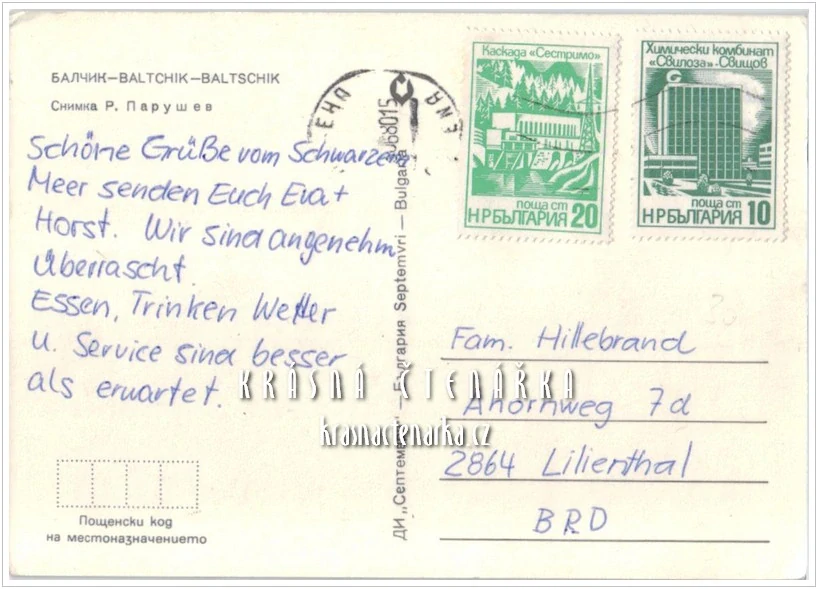 БАЛЧИК—BALTCHIK—BALTSCHIK
Снимка Р. Парушев
Schöne Grüße vom Schwarzen
Meer senden Euch Eva +
Horst. Wir sind angenehm
überrascht.
Essen, Trinken Wetter
u. Service sind besser
als erwartet.
Пощенски код
на местоназначението
ДИ „Септември" — България Septemvri — Bulgaria
Каскада «Сестримо»
поща ст
НРБЪЛГАРИЯ 20
Химически комбинат
«Свилоза»-Свищов
поща ст
НРБЪЛГАРИЯ 10
Fam. Hillebrand
Ahornweg 7d
2864 Lilienthal
BRD
KRÁSNÁ ČTENÁŘKA
krasnactenarka.cz